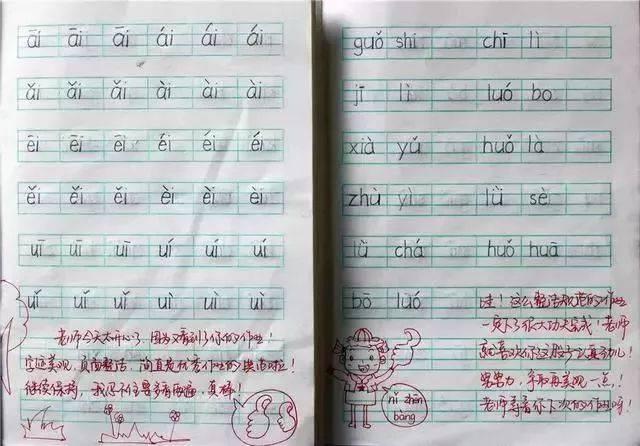 āi āi āi ái ái ái
ǎi ǎi ǎi ài ài ài
ēi ēi ēi éi éi éi
ěi ěi ěi èi èi èi
uī uī uī uí uí uí
uǐ uǐ uǐ uì uì uì
老师今天太开心了，因为又看到了你的作业！
字迹美观，页面整洁，简直是优秀作业的典范啦！
继续保持，我忍不住要多看两遍，真棒！
guǒ shí chī lì
jī lì luó bo
xià yǔ huǒ là
zhù yì lǜ sè
lǜ chá huǒ huā
bō luó
哇！这么整洁规范的作业
一定下了很大功夫完成！老师
就喜欢你这股子认真劲儿！
努努力，争取再美观一点！
老师等着你下次的作业呀！
nǐ zhēn
bàng